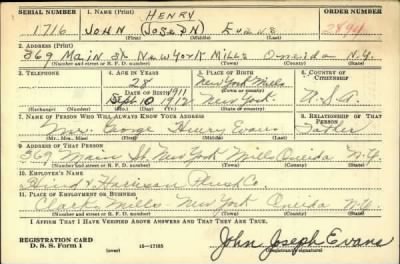 SERIAL NUMBER 1. NAME (Print) ORDER NUMBER
HENRY
1716 JOHN (JOSEPH) EVANS 2894
(First) (Middle) (Last)
2. ADDRESS (Print)
369 Main St New York Mills Oneida N.Y.
(Number and street or R. F. D. number) (Town) (County) (State)
3. TELEPHONE 4. AGE IN YEARS 5. PLACE OF BIRTH 6. COUNTRY OF CITIZENSHIP
28 New York Mills
DATE OF BIRTH (Town or county)
1911
Sept. 10 1912 New York. U.S.A.
(Exchange) (Number) (Mo.) (Day) (Yr.) (State or country)
7. NAME OF PERSON WHO WILL ALWAYS KNOW YOUR ADDRESS 8. RELATIONSHIP OF THAT PERSON
Mr. George Henry Evans Father
(Mr., Mrs., Miss) (First) (Middle) (Last)
9. ADDRESS OF THAT PERSON
369 Main St. New York Mills Oneida N.Y.
(Number and street or R. F. D. number) (Town) (County) (State)
10. EMPLOYER'S NAME
Hind & Harrison Plush Co.
11. PLACE OF EMPLOYMENT OR BUSINESS
Clark Mills New York Oneida N.Y.
(Number and street or R. F. D. number) (Town) (County) (State)
I AFFIRM THAT I HAVE VERIFIED ABOVE ANSWERS AND THAT THEY ARE TRUE.
REGISTRATION CARD
D. S. S. Form 1 16—17105
John Joseph Evans
(Registrant's signature)